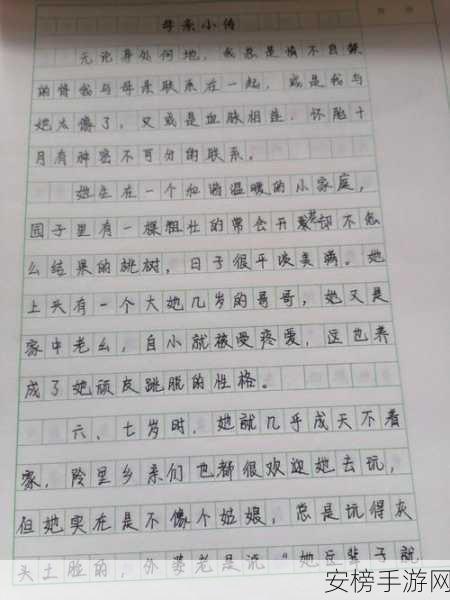 母亲小传
无论身处何地，我总是情不自禁
的将我与母亲联系在一起，或是我与
她太像了，又或是血脉相连，怀胎十
月有种密不可分的联系。
她生在一个和谐温暖的小家庭，
园子里有一棵粗壮的常会开花却不怎
么结果的桃树，日子很平淡美满。她
上头有一个大她几岁的哥哥，她又是
家中老么，自小就被受疼爱，这也养
成了她顽皮跳脱的性格。
六、七岁时，她就几乎成天不着
家，邻里乡亲们也都很欢迎她去玩，
但她实在是不像个姑娘，总是玩得灰
头土脸的，外婆老是说"她这辈子就
安榜手游网